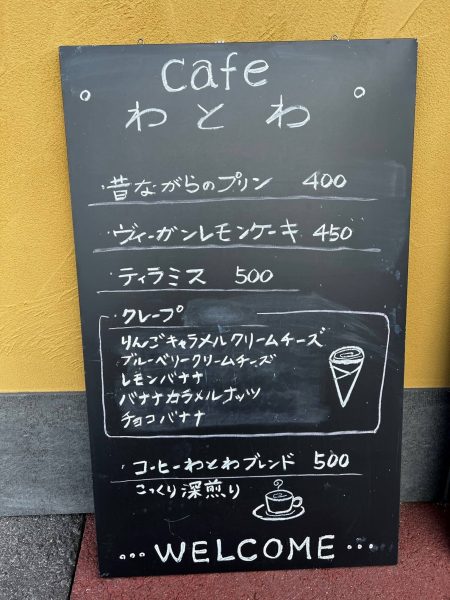 cafe
わとわ
・昔ながらのプリン 400
・ヴィーガンレモンケーキ 450
・ティラミス 500
・クレープ
りんごキャラメルクリームチーズ
ブルーベリークリームチーズ
レモンバナナ
バナナカラメルナッツ
チョコバナナ
・コーヒーわとわブレンド 500
こっくり深煎り
...WELCOME...